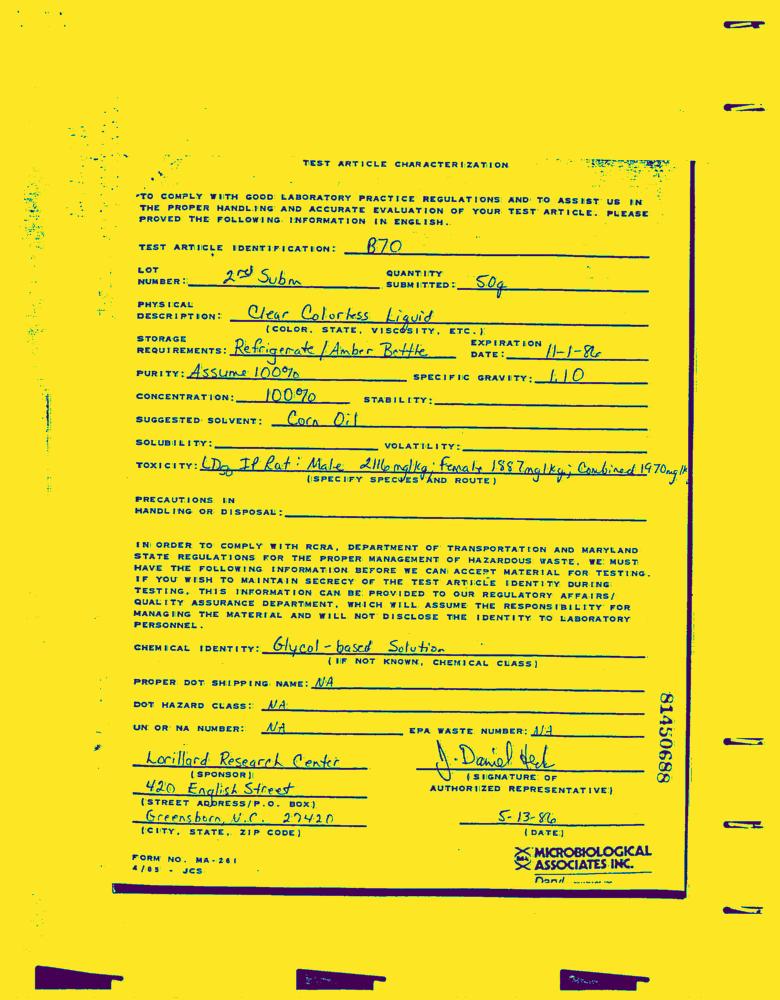 TEST ARTICLE CHARACTERIZATION
TO COMPLY WITH GOOD LABORATORY PRACTICE REGULATIONS AND TO ASSIST US IN
THE PROPER HANDLING AND ACCURATE EVALUATION OF YOUR TEST ARTICLE. PLEASE
PROVED THE FOLLOWING INFORMATION IN ENGLISH.
TEST ARTICLE IDENTIFICATION: B70
LOT NUMBER: 2nd Subm QUANTITY SUBMITTED: 50g
PHYSICAL
DESCRIPTION: Clear Colorless Liquid
(COLOR, STATE, VISCOSITY, ETC.)
STORAGE
REQUIREMENTS: Refrigerate / Amber Bottle EXPIRATION DATE: 11-1-86
PURITY: Assume 100% SPECIFIC GRAVITY: 1.10
CONCENTRATION: 100% STABILITY:
SUGGESTED SOLVENT: Corn Oil
SOLUBILITY: VOLATILITY:
TOXICITY: LD50 IP Rat: Male 2116 mg/kg; Female 1887 mg/kg; Combined 1970 mg/k
(SPECIFY SPECIES AND ROUTE)
PRECAUTIONS IN
HANDLING OR DISPOSAL:
IN ORDER TO COMPLY WITH RCRA, DEPARTMENT OF TRANSPORTATION AND MARYLAND
STATE REGULATIONS FOR THE PROPER MANAGEMENT OF HAZARDOUS WASTE, WE MUST
HAVE THE FOLLOWING INFORMATION BEFORE WE CAN ACCEPT MATERIAL FOR TESTING.
IF YOU WISH TO MAINTAIN SECRECY OF THE TEST ARTICLE IDENTITY DURING
TESTING, THIS INFORMATION CAN BE PROVIDED TO OUR REGULATORY AFFAIRS/
QUALITY ASSURANCE DEPARTMENT, WHICH WILL ASSUME THE RESPONSIBILITY FOR
MANAGING THE MATERIAL AND WILL NOT DISCLOSE THE IDENTITY TO LABORATORY
PERSONNEL.
CHEMICAL IDENTITY: Glycol-based Solution
(IF NOT KNOWN, CHEMICAL CLASS)
PROPER DOT SHIPPING NAME: NA
DOT HAZARD CLASS: NA
UN OR NA NUMBER: NA EPA WASTE NUMBER: NA
Lorillard Research Center J. Daniel Heck
(SPONSOR) (SIGNATURE OF
420 English Street AUTHORIZED REPRESENTATIVE)
(STREET ADDRESS/P.O. BOX)
Greensboro, N.C. 27420 5-13-86
(CITY, STATE, ZIP CODE) (DATE)
FORM NO. MA-261
4/85 - JCS
MICROBIOLOGICAL
ASSOCIATES INC.
81450688